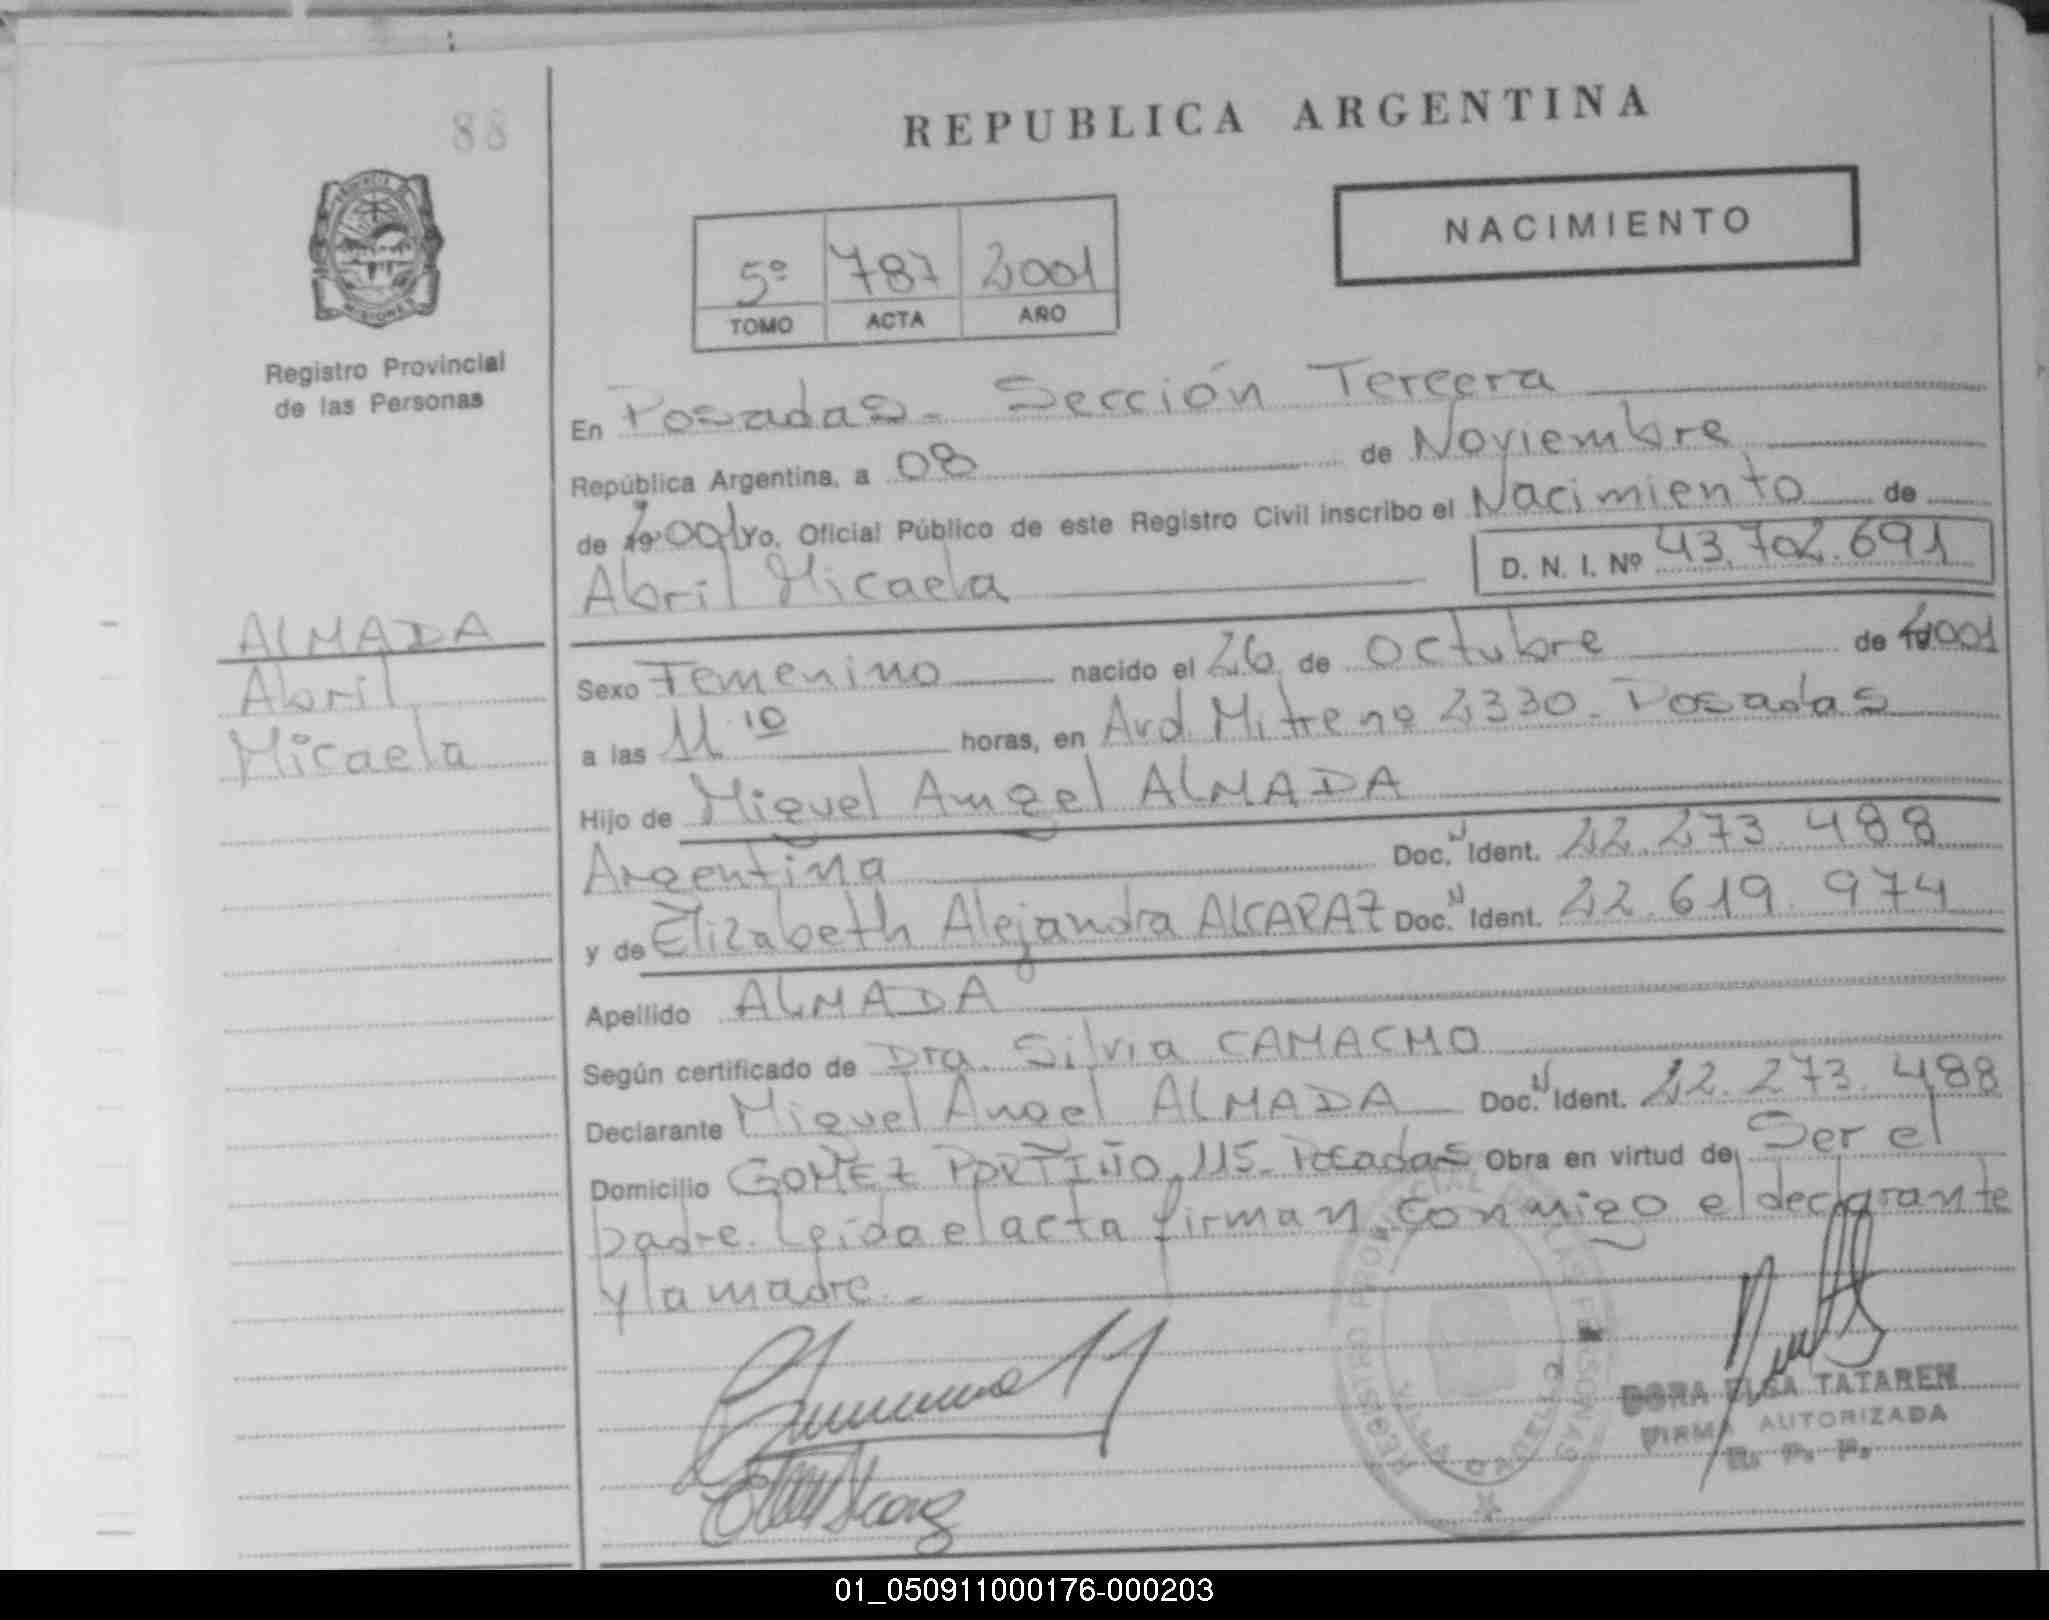 88
REPUBLICA ARGENTINA
NACIMIENTO
5º 787 2001
TOMO ACTA AÑO
Registro Provincial
de las Personas
En Posadas - Sección Tercera
República Argentina, a 08 de Noviembre
de 2001 yo, Oficial Público de este Registro Civil inscribo el Nacimiento de
Abril Micaela D. N. I. Nº 43.702.691
ALMADA
Abril
Micaela
Sexo Femenino nacido el 26 de Octubre de 2001
a las 11 10 horas, en Avd. Mitre nº 2330 - Posadas
Hijo de Miguel Angel ALMADA
Argentina Doc. N Ident. 22.273.488
y de Elizabeth Alejandra ALCARAZ Doc. N Ident. 22.619.974
Apellido ALMADA
Según certificado de Dra. Silvia CAMACHO
Declarante Miguel Angel ALMADA Doc. N Ident. 22.273.488
Domicilio GOMEZ PORTIÑO 115 - Posadas Obra en virtud de Ser el
padre. Leida el acta firman conmigo el declarante
y la madre. -
REGISTRO PROVINCIAL DE LAS PERSONAS
DORA ELSA TATAREN
FIRMA AUTORIZADA
R. P. P.
01_050911000176-000203